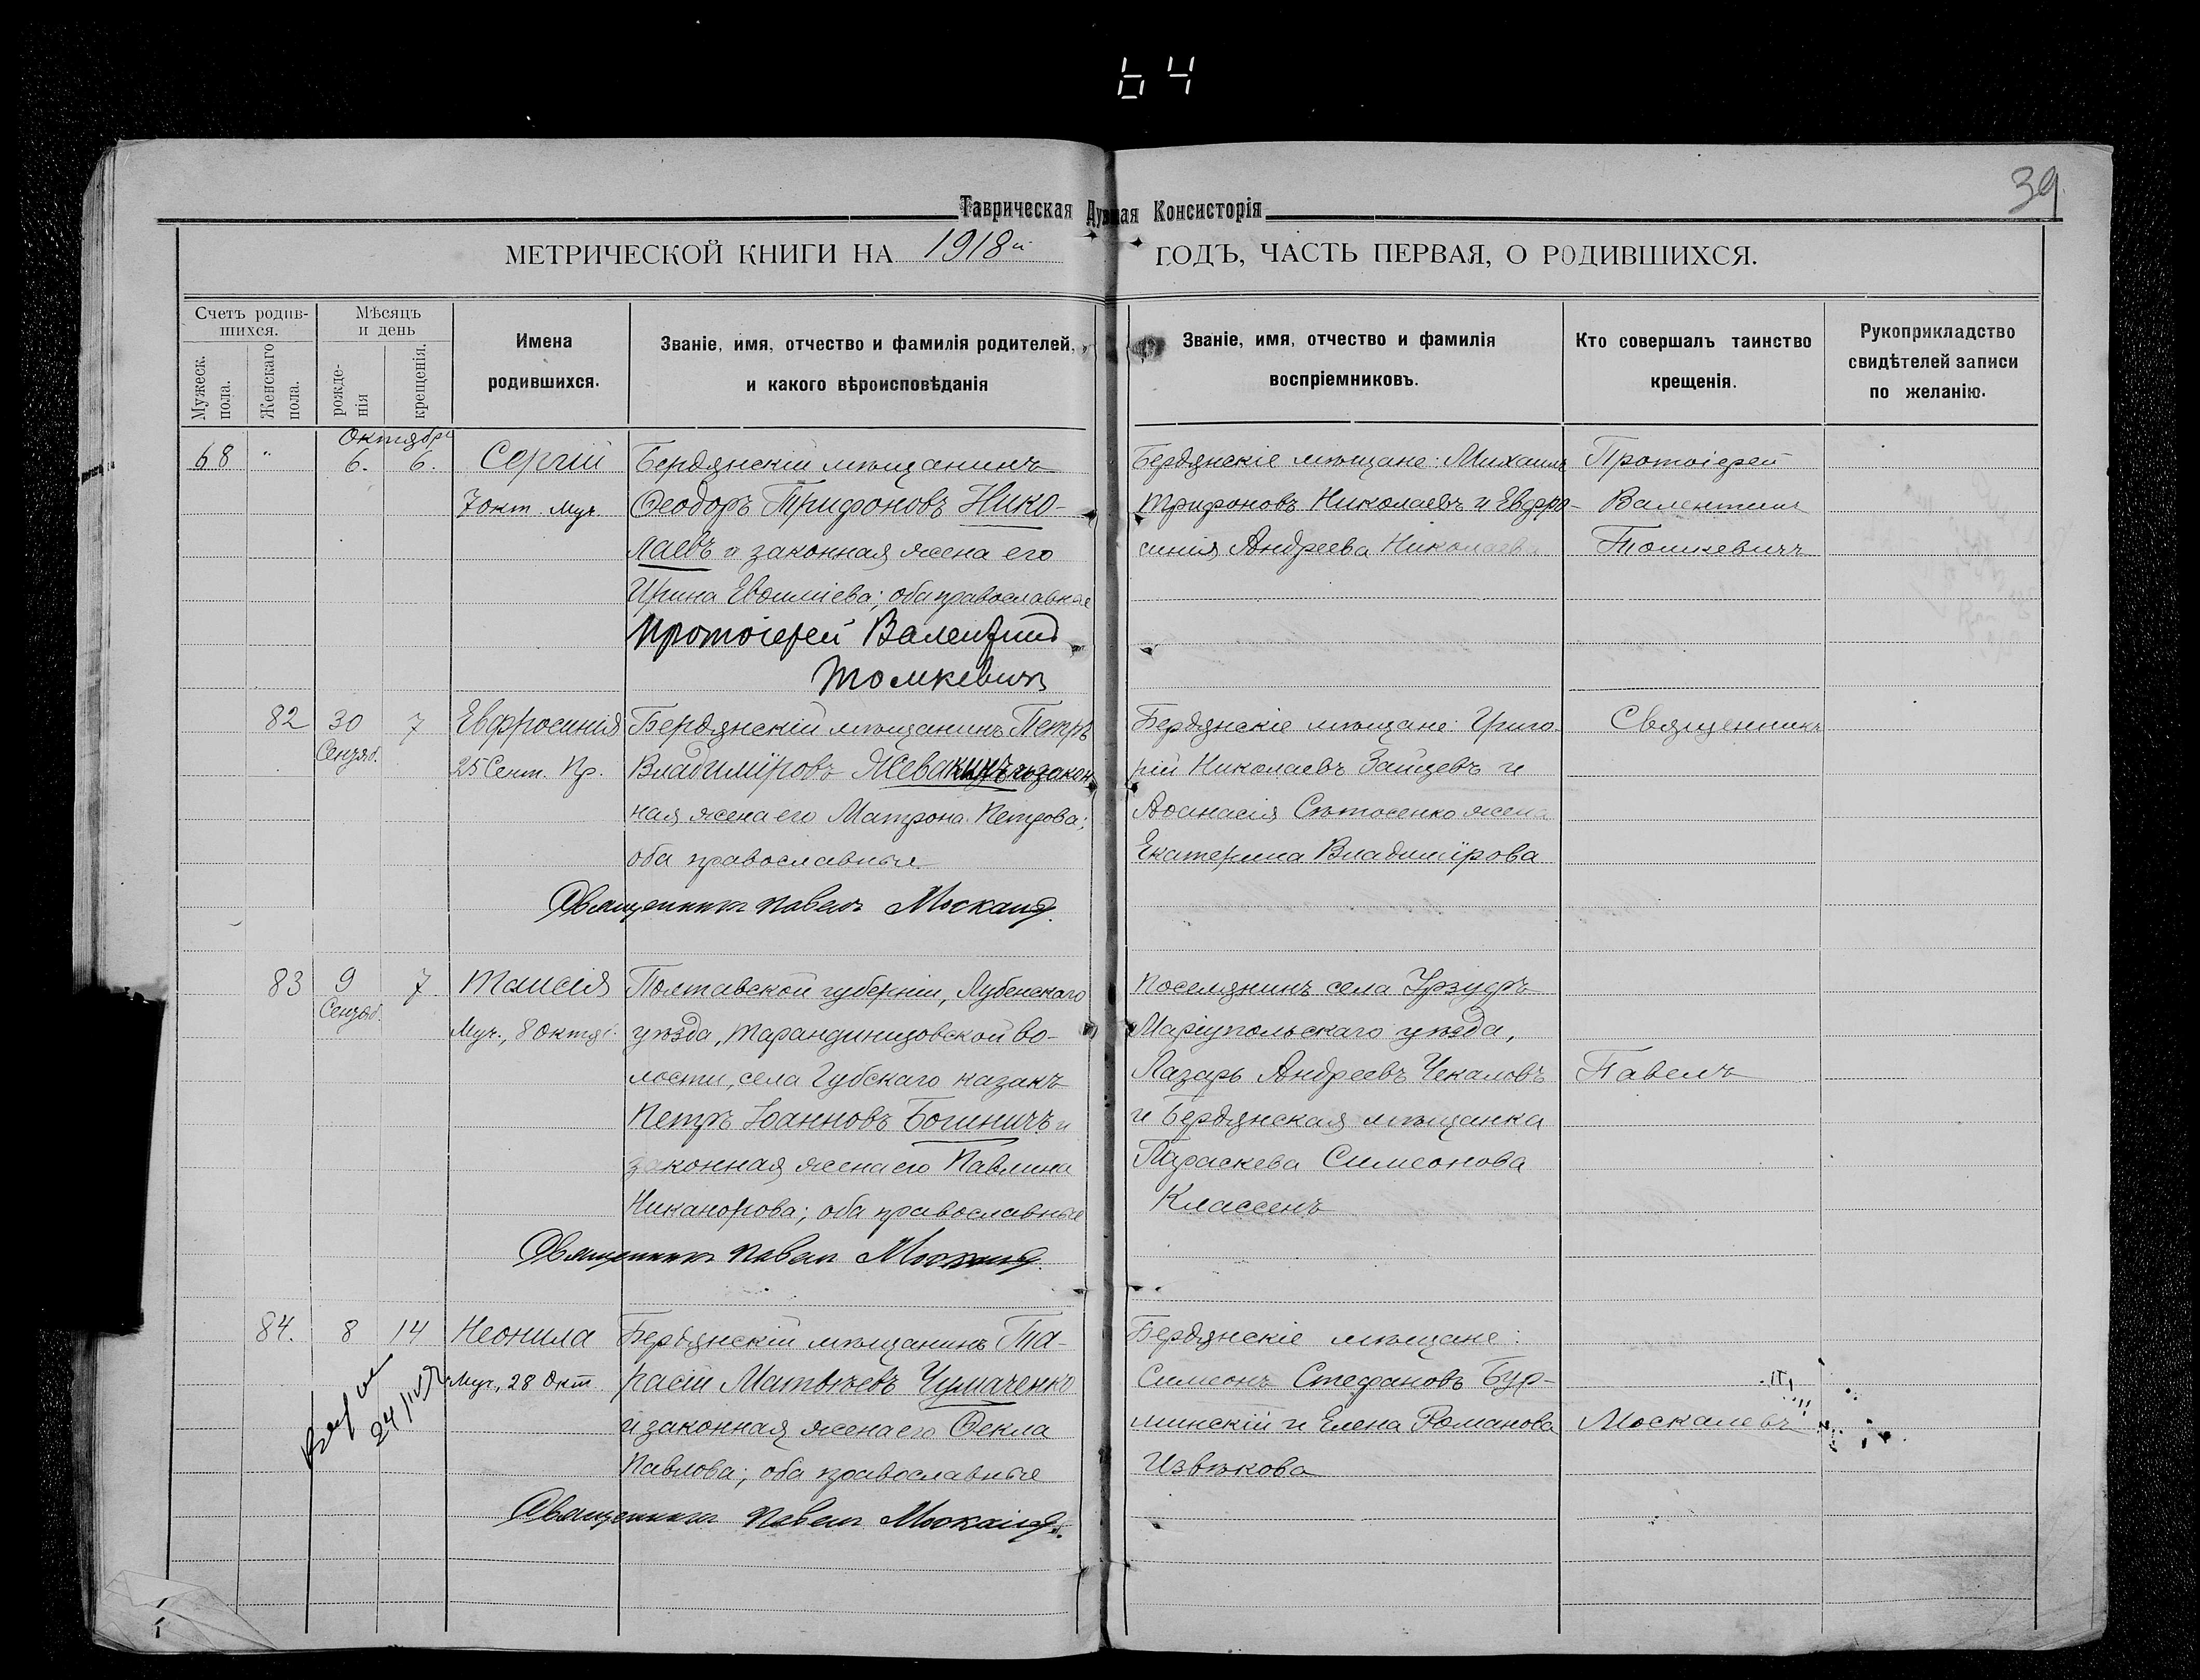 64
39
Таврическая Духовная Консисторія
МЕТРИЧЕСКОЙ КНИГИ НА 1918й ГОДЪ, ЧАСТЬ ПЕРВАЯ, О РОДИВШИХСЯ.
Счетъ родив-
шихся.
Мужеск.
пола.
Женскаго
пола.
Мѣсяцъ
и день
рожде-
нія
крещенія.
Имена
родившихся.
Званіе, имя, отчество и фамилія родителей,
и какого вѣроисповѣданія
Званіе, имя, отчество и фамилія
воспріемниковъ.
Кто совершалъ таинство
крещенія.
Рукоприкладство
свидѣтелей записи
по желанію.
Октября
68 " 6. 6. Сергій
7 окт. муч.
Бердянскій мѣщанинъ
Ѳеодоръ Трифоновъ Нико-
лаевъ и законная жена его
Ирина Евѳиміева; оба православные
Протоіерей Валентинъ
Томкевичъ
Бердянскіе мѣщане: Михаилъ
Трифоновъ Николаевъ и Евфро-
синія Андреева Николаева
Протоіерей
Валентинъ
Томкевичъ
82 30 7 Евфросинія
Сентяб.
25 Сент. Пр.
Бердянскій мѣщанинъ Петръ
Владиміровъ Жевакинъ и закон
ная жена его Матрона Петрова;
оба православные
Священникъ Павелъ Москалевъ
Бердянскіе мѣщане: Григо-
рій Николаевъ Зайцевъ и
Аѳанасія жена
Екатерина Владимірова
Священникъ
83 9 7 Таисія
Сентяб.
Муч., 8 Октяб.
Полтавской губерніи, Лубенскаго
уѣзда, Тарандинцовской во-
лости, села Губскаго казакъ
Петръ Іоанновъ Богиничъ и
законная жена его Павлина
Никанорова; оба православные
Священникъ Павелъ Москалевъ
Поселянинъ села Урзуфъ
Маріупольскаго уѣзда,
Лазарь Андреевъ Чекаловъ
и Бердянская мѣщанка
Параскева Симеонова
Классенъ
Павелъ
84. 8 14 Неонила
Муч., 28 Окт.
Бердянскій мѣщанинъ Та-
расій Матвѣевъ Чумаченко
и законная жена его Ѳекла
Павлова; оба православные
Священникъ Павелъ Москалевъ
Бердянскіе мѣщане:
Симеонъ Стефановъ Бур-
минскій и Елена Романова
Извѣкова
Москалевъ